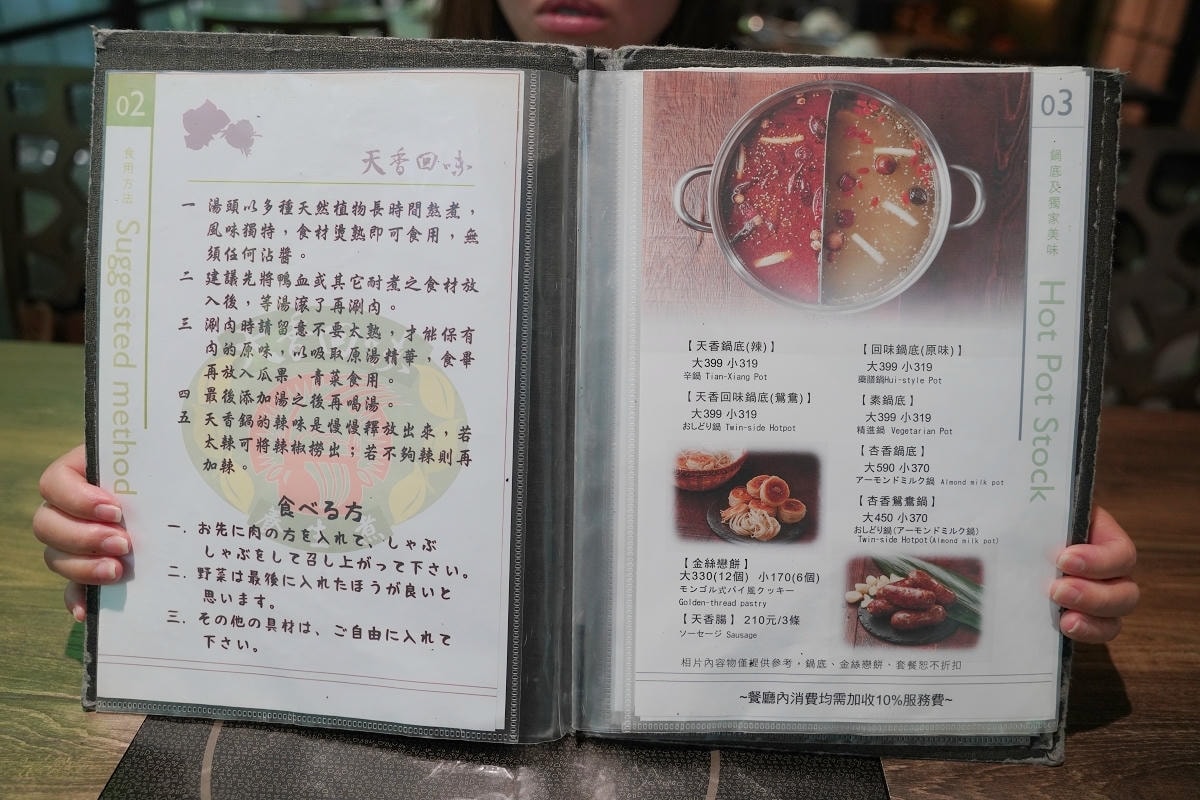 02
食用方法
Suggested method
天香回味
一 湯頭以多種天然植物長時間熬煮，
風味獨特，食材燙熟即可食用，無
須任何沾醬。
二 建議先將鴨血或其它耐煮之食材放
入後，等湯滾了再涮肉。
三 涮肉時請留意不要太熟，才能保有
肉的原味，以吸取原湯精華，食畢
再放入瓜果、青菜食用。
四 最後添加湯之後再喝湯。
五 天香鍋的辣味是慢慢釋放出來，若
太辣可將辣椒撈出；若不夠辣則再
加辣。
食べる方
一. お先に肉の方を入れて、しゃぶ
しゃぶをして召し上がって下さい。
二. 野菜は最後に入れたほうが良いと
思います。
三. その他の具材は、ご自由に入れて
下さい。
03
鍋底及獨家美味
Hot Pot Stock
【天香鍋底(辣)】
大399 小319
辛鍋 Tian-Xiang Pot
【天香回味鍋底(鴛鴦)】
大399 小319
おしどり鍋 Twin-side Hotpot
【回味鍋底(原味)】
大399 小319
藥膳鍋Hui-style Pot
【素鍋底】
大399 小319
精進鍋 Vegetarian Pot
【杏香鍋底】
大590 小370
アーモンドミルク鍋 Almond milk pot
【杏香鴛鴦鍋】
大450 小370
おしどり鍋(アーモンドミルク鍋)
Twin-side Hotpot(Almond milk pot)
【金絲戀餅】
大330(12個) 小170(6個)
モンゴル式パイ風クッキー
Golden-thread pastry
【天香腸】 210元/3條
ソーセージ Sausage
相片內容物僅提供參考，鍋底、金絲戀餅、套餐恕不折扣
~餐廳內消費均需加收10%服務費~